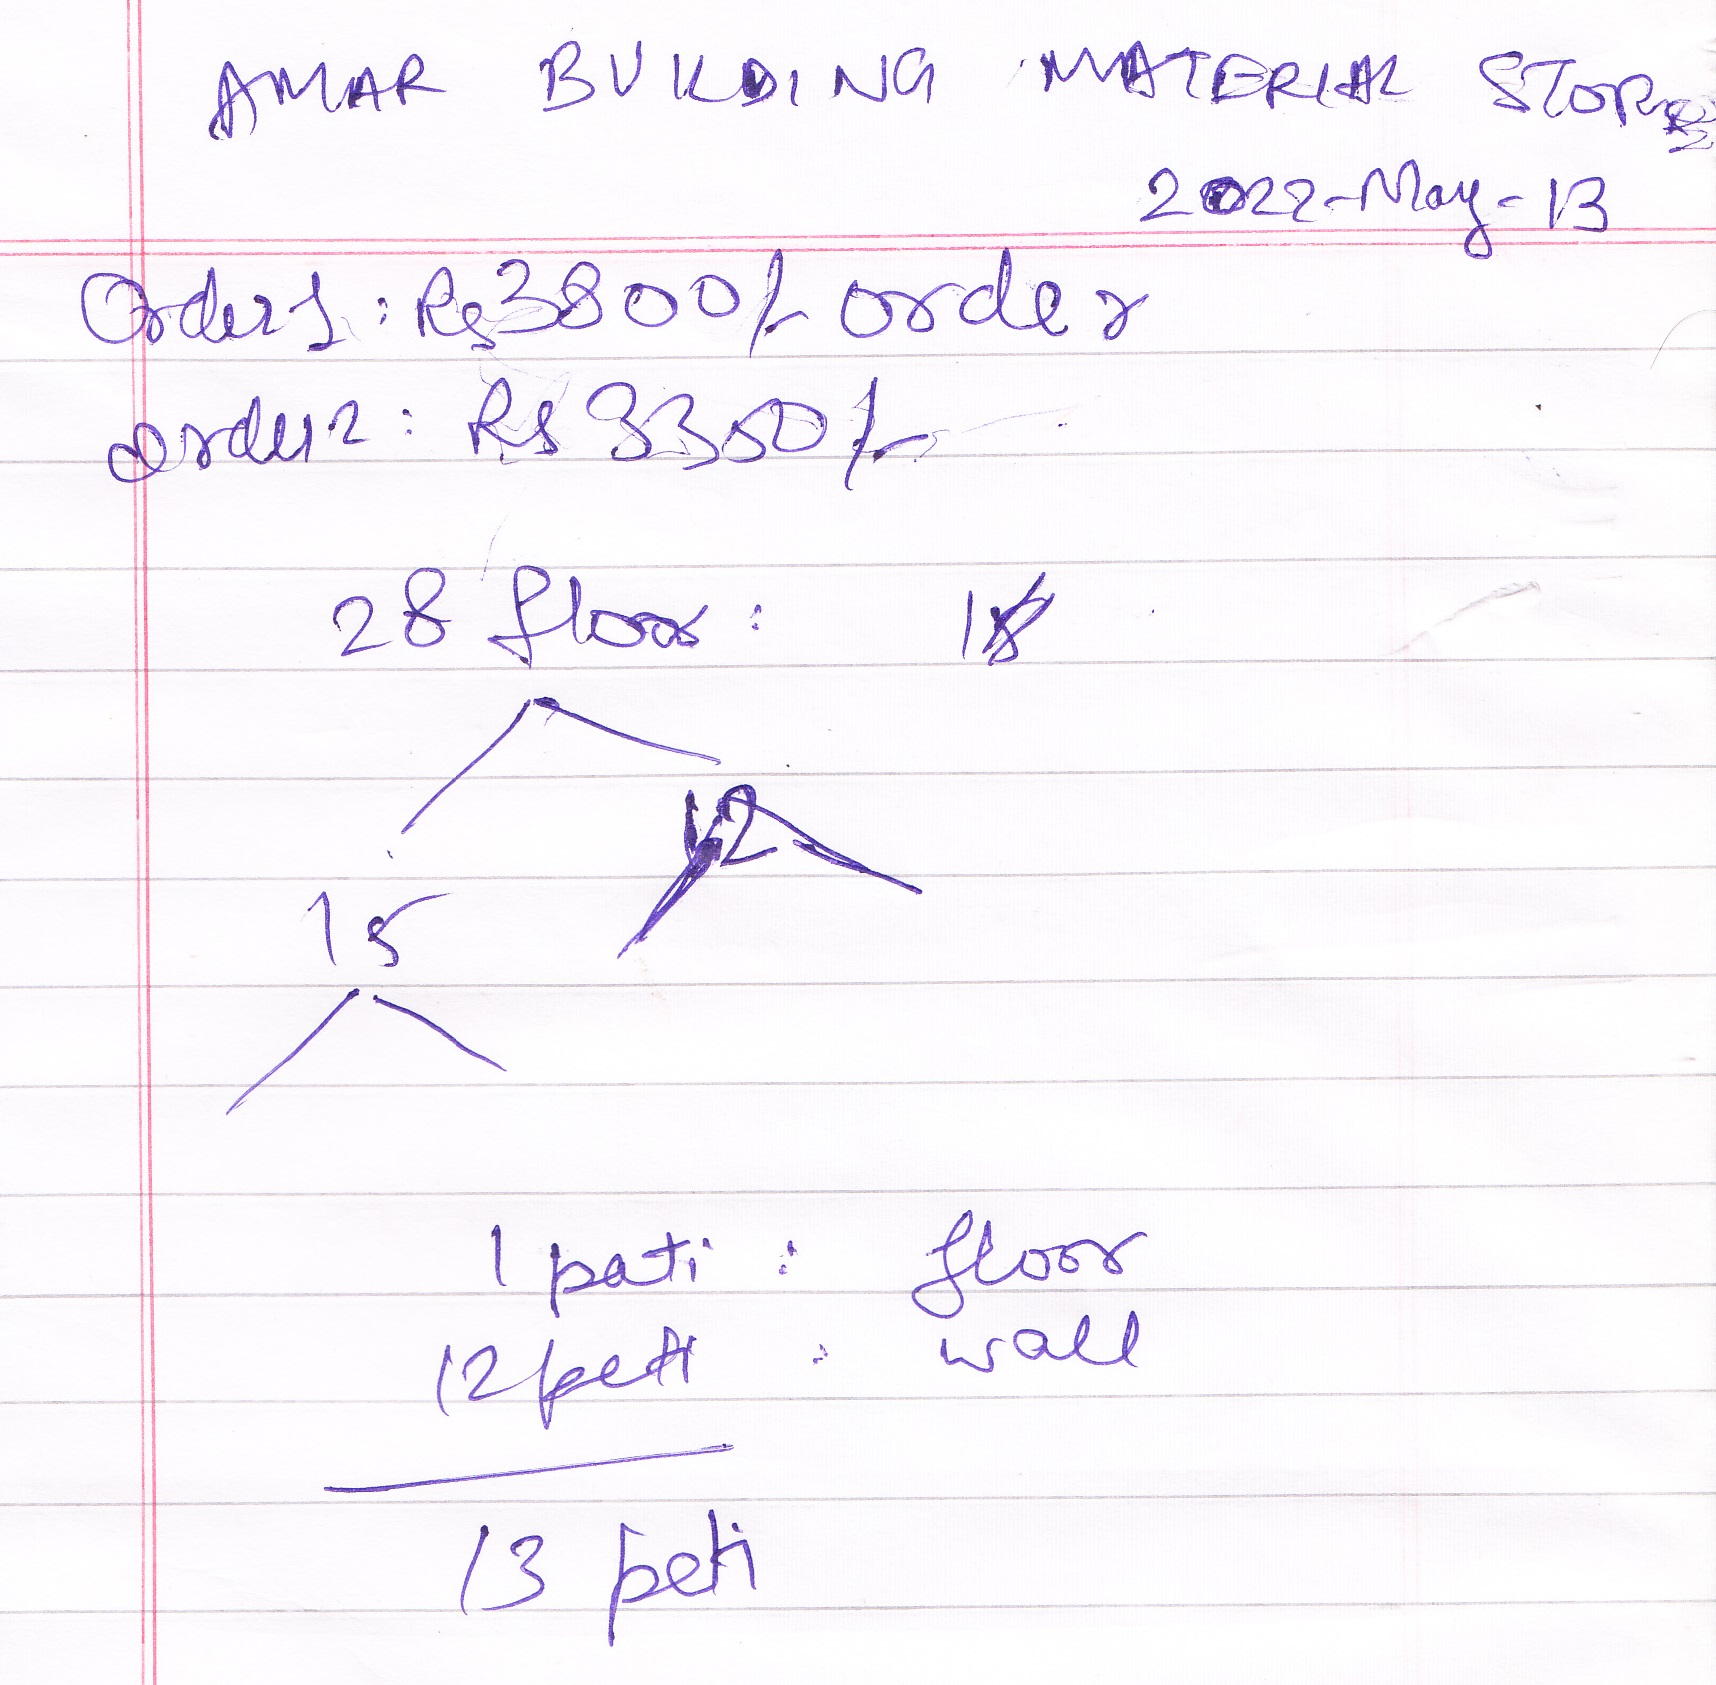 AMAR BUILDING MATERIAL STORE
2022-May-13
Order1 : Rs3800/- order
order2 : Rs 3350/-
28 floor :
12
15
1 pati : floor
12 peti : wall
13 peti